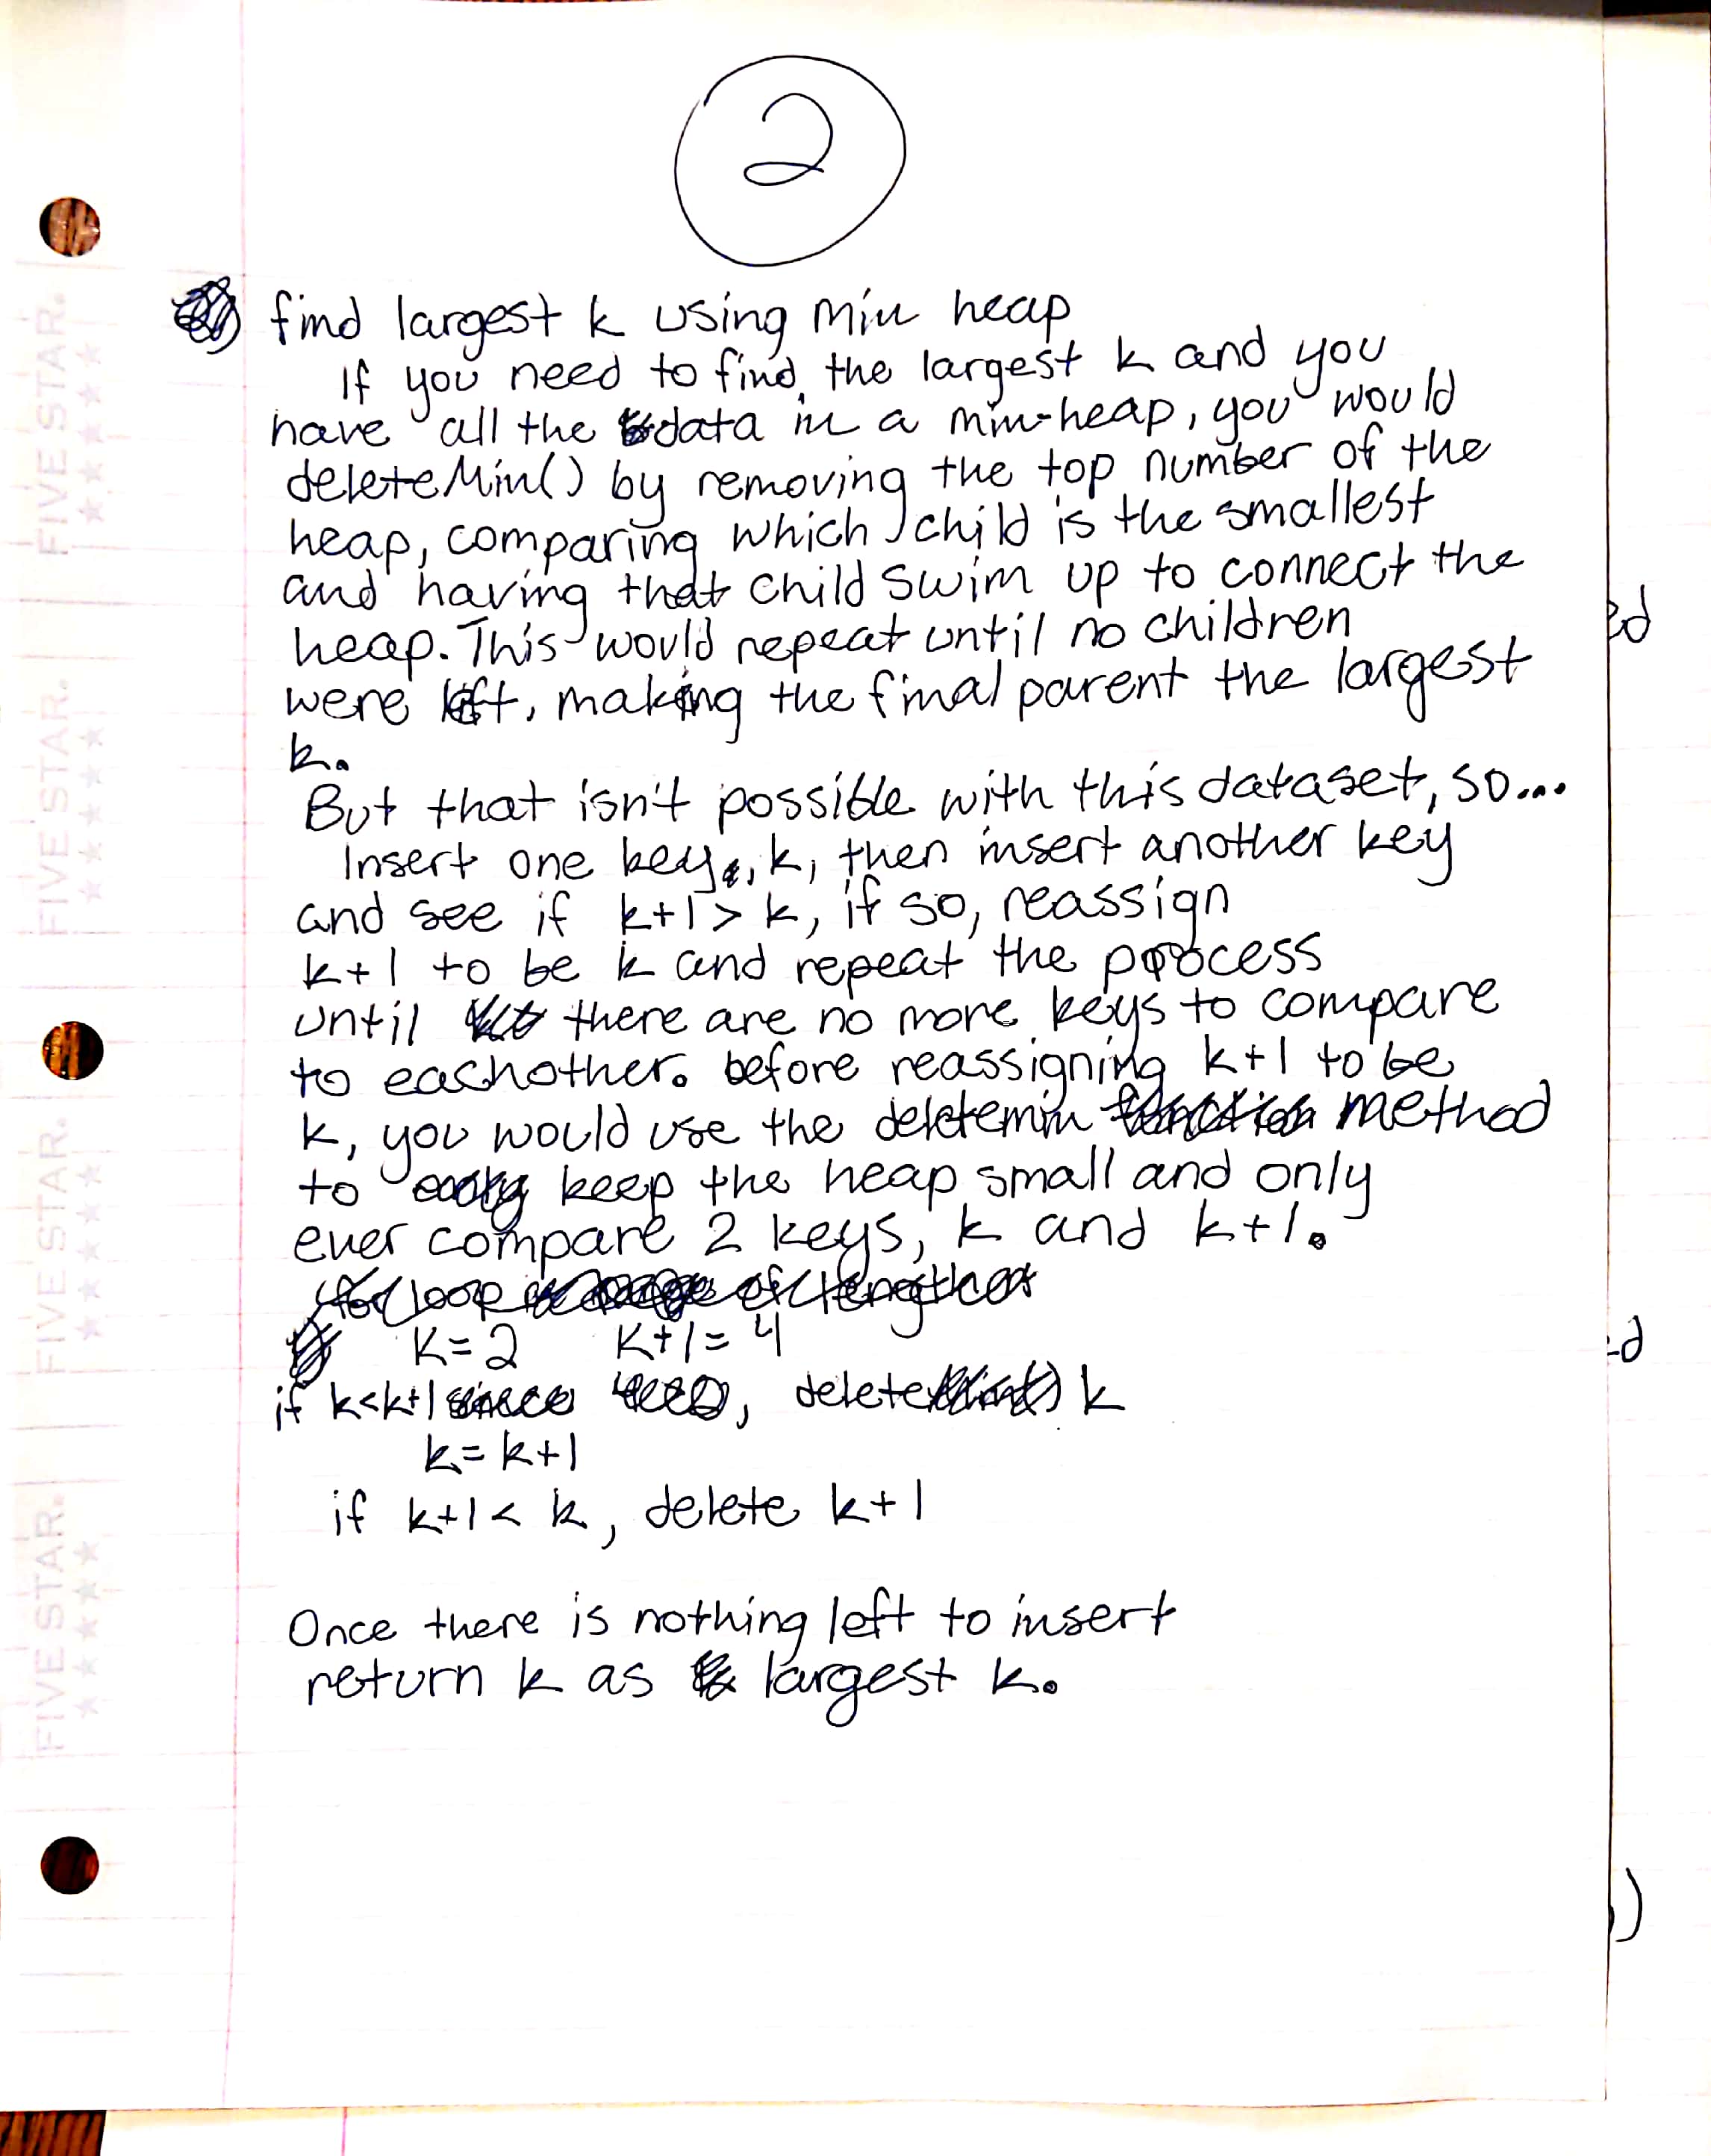 2
find largest k using min heap
If you need to find the largest k and you
have all the data in a min-heap, you would
deleteMin() by removing the top number of the
heap, comparing which child is the smallest
and having that child swim up to connect the
heap. This would repeat until no children
were left, making the final parent the largest
k.
But that isn't possible with this dataset, so...
Insert one key, k, then insert another key
and see if k+1 > k, if so, reassign
k+1 to be k and repeat the process
until there are no more keys to compare
to eachother. before reassigning k+1 to be
k, you would use the deletemin method
to keep the heap small and only
ever compare 2 keys, k and k+1.
for loop of length
k=2 k+1=4
if k<k+1 since, delete k
k=k+1
if k+1 < k, delete k+1
Once there is nothing left to insert
return k as largest k.
ed
d
)
FIVE STAR.
FIVE STAR.
FIVE STAR.
FIVE STAR.